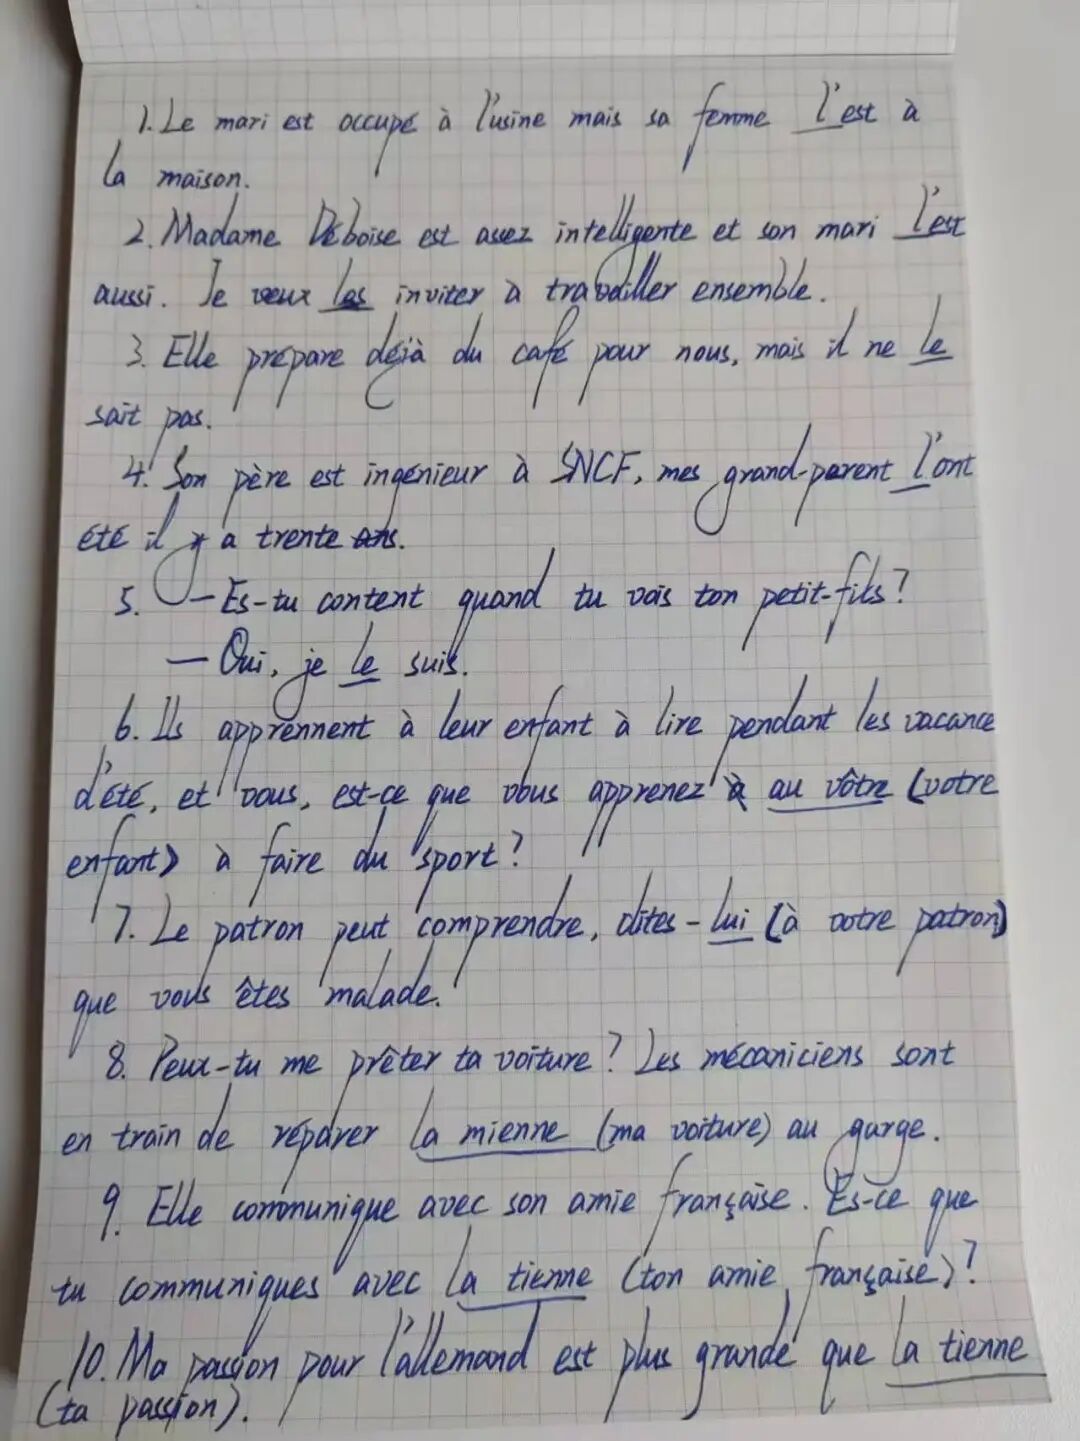 1. Le mari est occupé à l'usine mais sa femme l'est à
la maison.
2. Madame Déboise est assez intelligente et son mari l'est
aussi. Je veux les inviter à travailler ensemble.
3. Elle prépare déjà du café pour nous, mais il ne le
sait pas.
4. Son père est ingénieur à SNCF, mes grand-parent l'ont
été il y a trente ans.
5. — Es-tu content quand tu vois ton petit-fils?
— Oui, je le suis.
6. Ils apprennent à leur enfant à lire pendant les vacance
d'été, et vous, est-ce que vous apprenez à au vôtre (votre
enfant) à faire du sport?
7. Le patron peut comprendre, dites-lui (à votre patron)
que vous êtes malade.
8. Peux-tu me prêter ta voiture? Les mécaniciens sont
en train de réparer la mienne (ma voiture) au garge.
9. Elle communique avec son amie française. Es-ce que
tu communiques avec la tienne (ton amie française)?
10. Ma passion pour l'allemand est plus grande que la tienne
(ta passion).